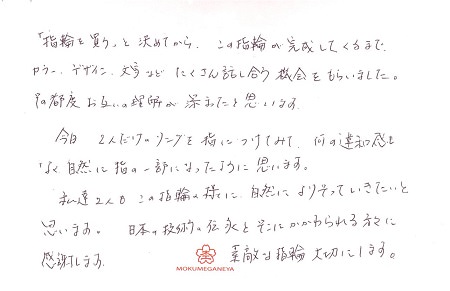 「指輪を買う」と決めてから、この指輪が完成してくるまで、
カラー、デザイン、文字など たくさん話し合う機会をもらいました。
その都度 お互いの理解が深まったと思います。
今日 2人だけのリングを指につけてみて、何の違和感も
なく自然に指の一部になったように思います。
私達2人も この指輪の様に、自然によりそっていきたいと
思います。 日本の技術の伝承とそこにかかわられる方々に
感謝します。 素敵な指輪 大切にします。
MOKUMEGANEYA